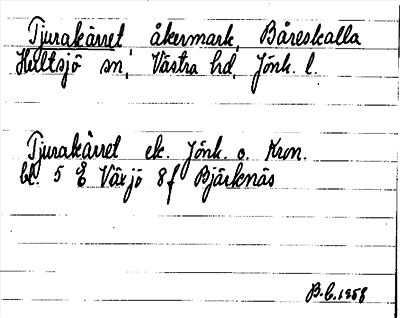 Tjurakärret, åkermark, Båreskalla
Hultsjö sn, Västra hd, Jönk. l.
Tjurakärret ek. Jönk. o. Kron.
bl. 5 E Växjö 8f Bjärknäs
B.C. 1958